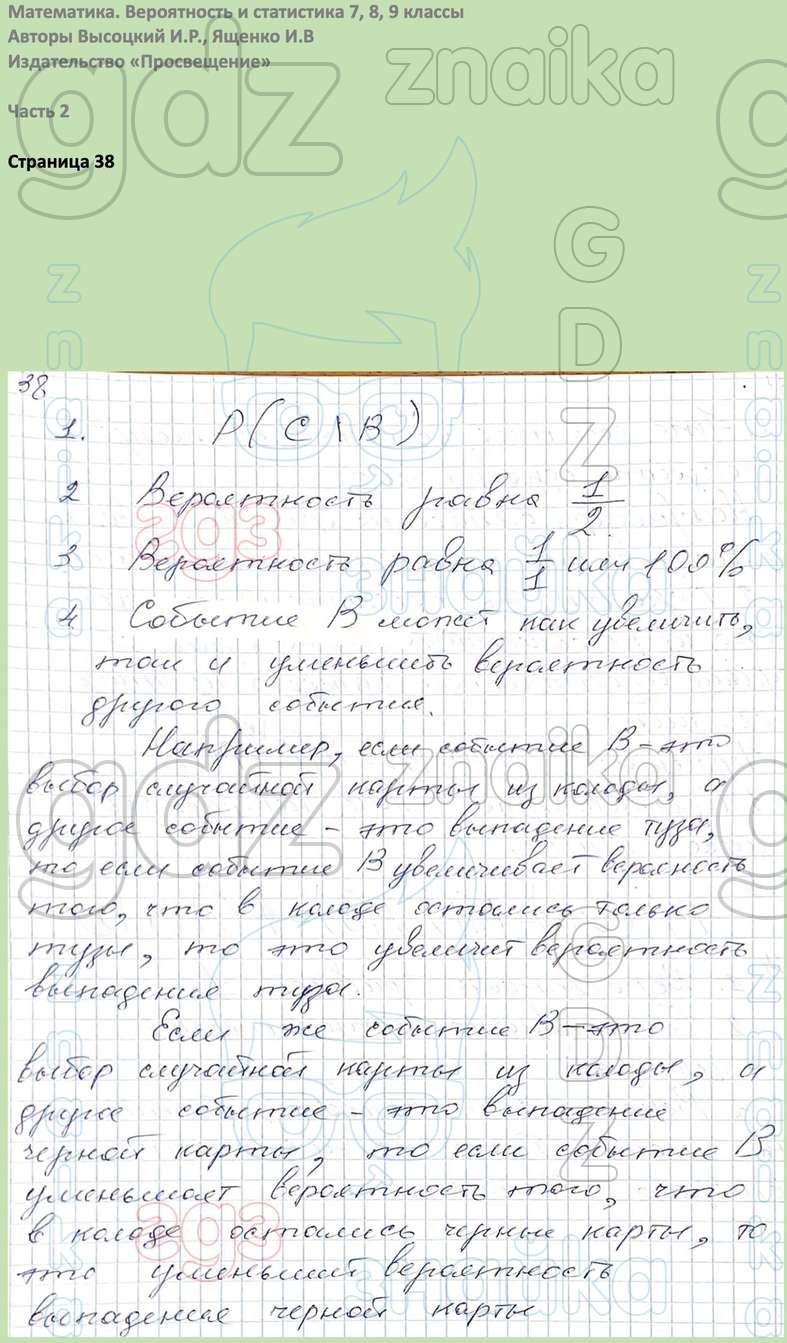 Математика. Вероятность и статистика 7, 8, 9 классы
Авторы Высоцкий И.Р., Ященко И.В
Издательство «Просвещение»
Часть 2
Страница 38
gdz znaika
GDZ
znaika
гдз
знайка
38
1. P(C | B)
2 Вероятность равна 1/2.
3 Вероятность равна 1/1 или 100%
4 Событие B может как увеличить,
так и уменьшить вероятность
другого события.
Например, если событие B – это
выбор случайной карты из колоды, а
другое событие – это выпадение туза,
то если событие B увеличивает верояность
того, что в колоде остались только
тузы, то это увеличит вероятность
выпадения туза.
Если же событие B – это
выбор случайной карты из колоды, а
другое событие – это выпадение
черной карты, то если событие B
уменьшает вероятность того, что
в колоде остались черные карты, то
это уменьшит вероятность
выпадения черной карты